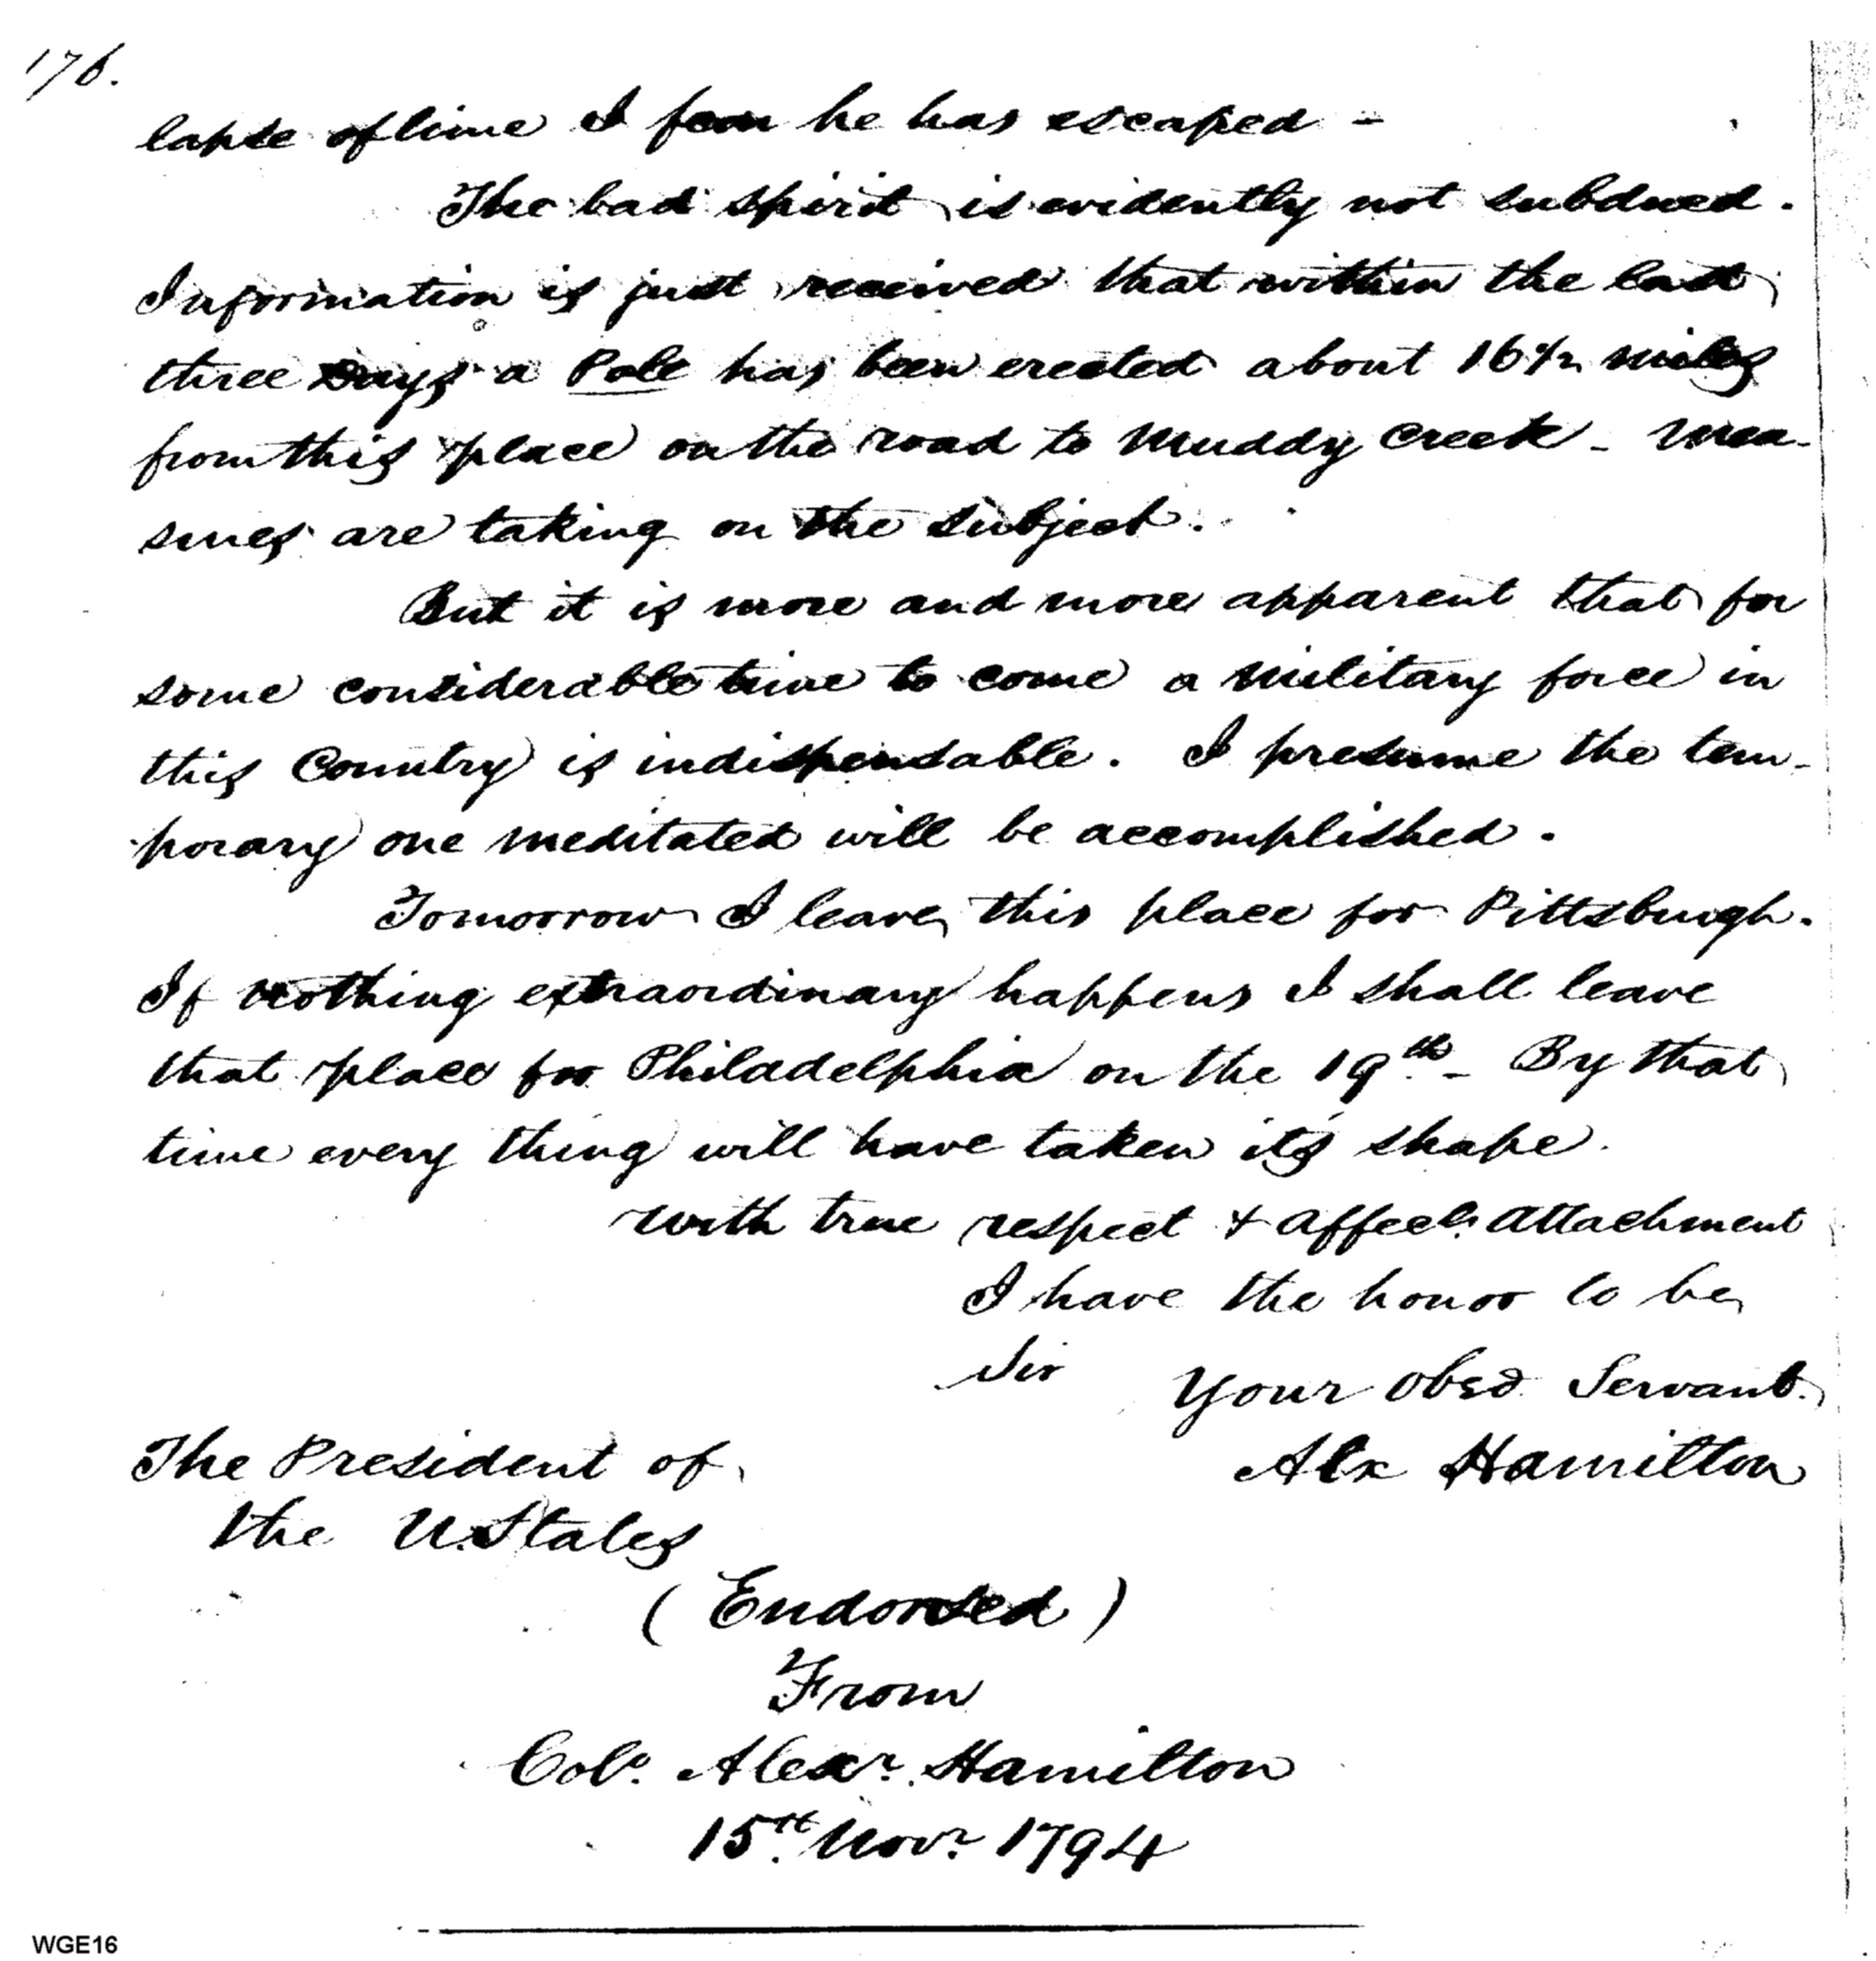 176.
lapse of time I fear he has escaped -
The bad spirit is evidently not subdued.
Information is just received that within the last
three Days a Pole has been erected about 16½ miles
from this place on the road to Muddy Creek - Mea-
sures are taking on the subject.
But it is more and more apparent that for
some considerable time to come a military force in
this Country is indispensable. I presume the tem-
porary one meditated will be accomplished.
Tomorrow I leave this place for Pittsburgh.
If nothing extraordinary happens I shall leave
that place for Philadelphia on the 19th - By that
time every thing will have taken its shape.
With true respect & affect. attachment
I have the honor to be
Sir Your obed Servant.
Alx Hamilton
The President of
the U. States
(Endorsed)
From
Colo. Alexr. Hamilton
15th. Novr. 1794
WGE16